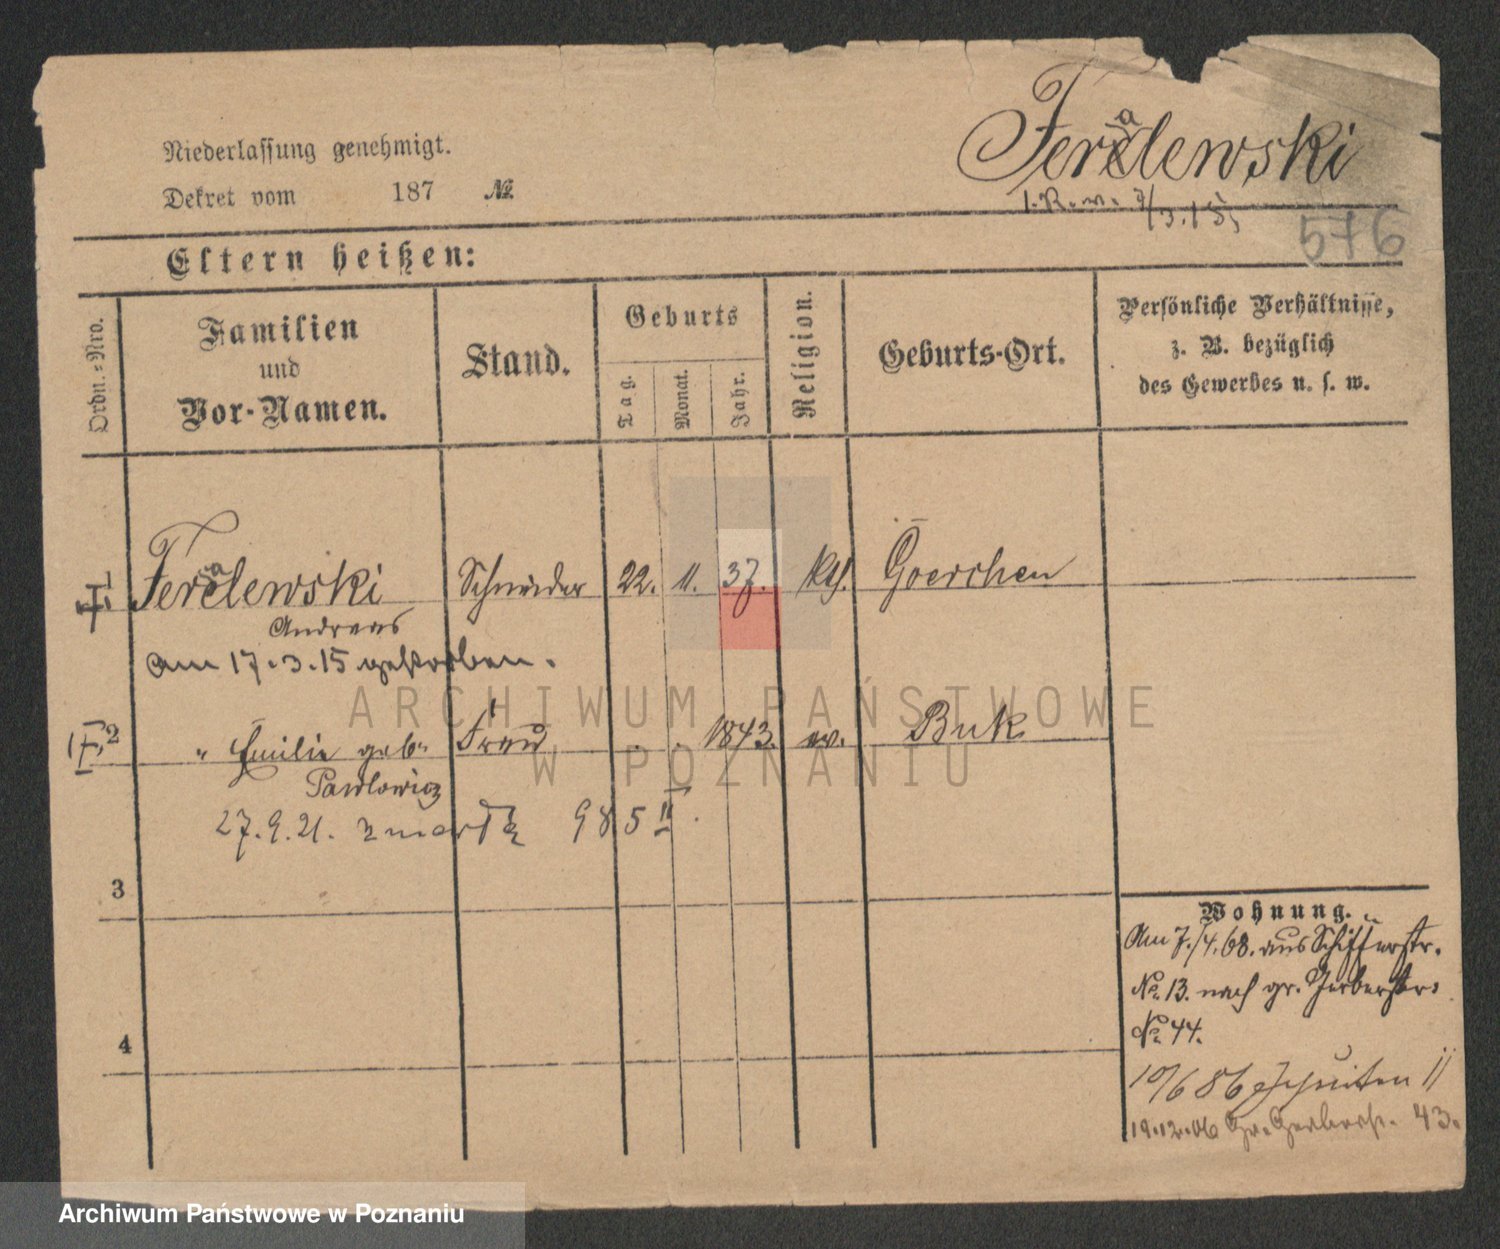 Feralewski
Niederlassung genehmigt.
Dekret vom 187 №
I. R. w. 7/3.15,
576
Eltern heißen:
Ordn.-Nro.
Familien und Vor-Namen.
Stand.
Geburts
Tag.
Monat.
Jahr.
Religion.
Geburts-Ort.
Persönliche Verhältnisse,
z. B. bezüglich
des Gewerbes u. s. w.
1 Feralewski Schneider 22. 11. 37. Kth. Goerchen
Andreas
am 17.3.15 gestorben.
2 " Emilie geb. Frau 1843. ev. Buk
Pawlowicz
27.9.21. zmarła 985 II.
3
Wohnung.
Am 7./4.68. aus Schifferstr.
No. 13. nach gr. Gerberstr.
No. 44.
4
10/6 86 Jesuiten 11
19.12.06 Gr. Gerberstr. 43.
ARCHIWUM PAŃSTWOWE
W POZNANIU
Archiwum Państwowe w Poznaniu